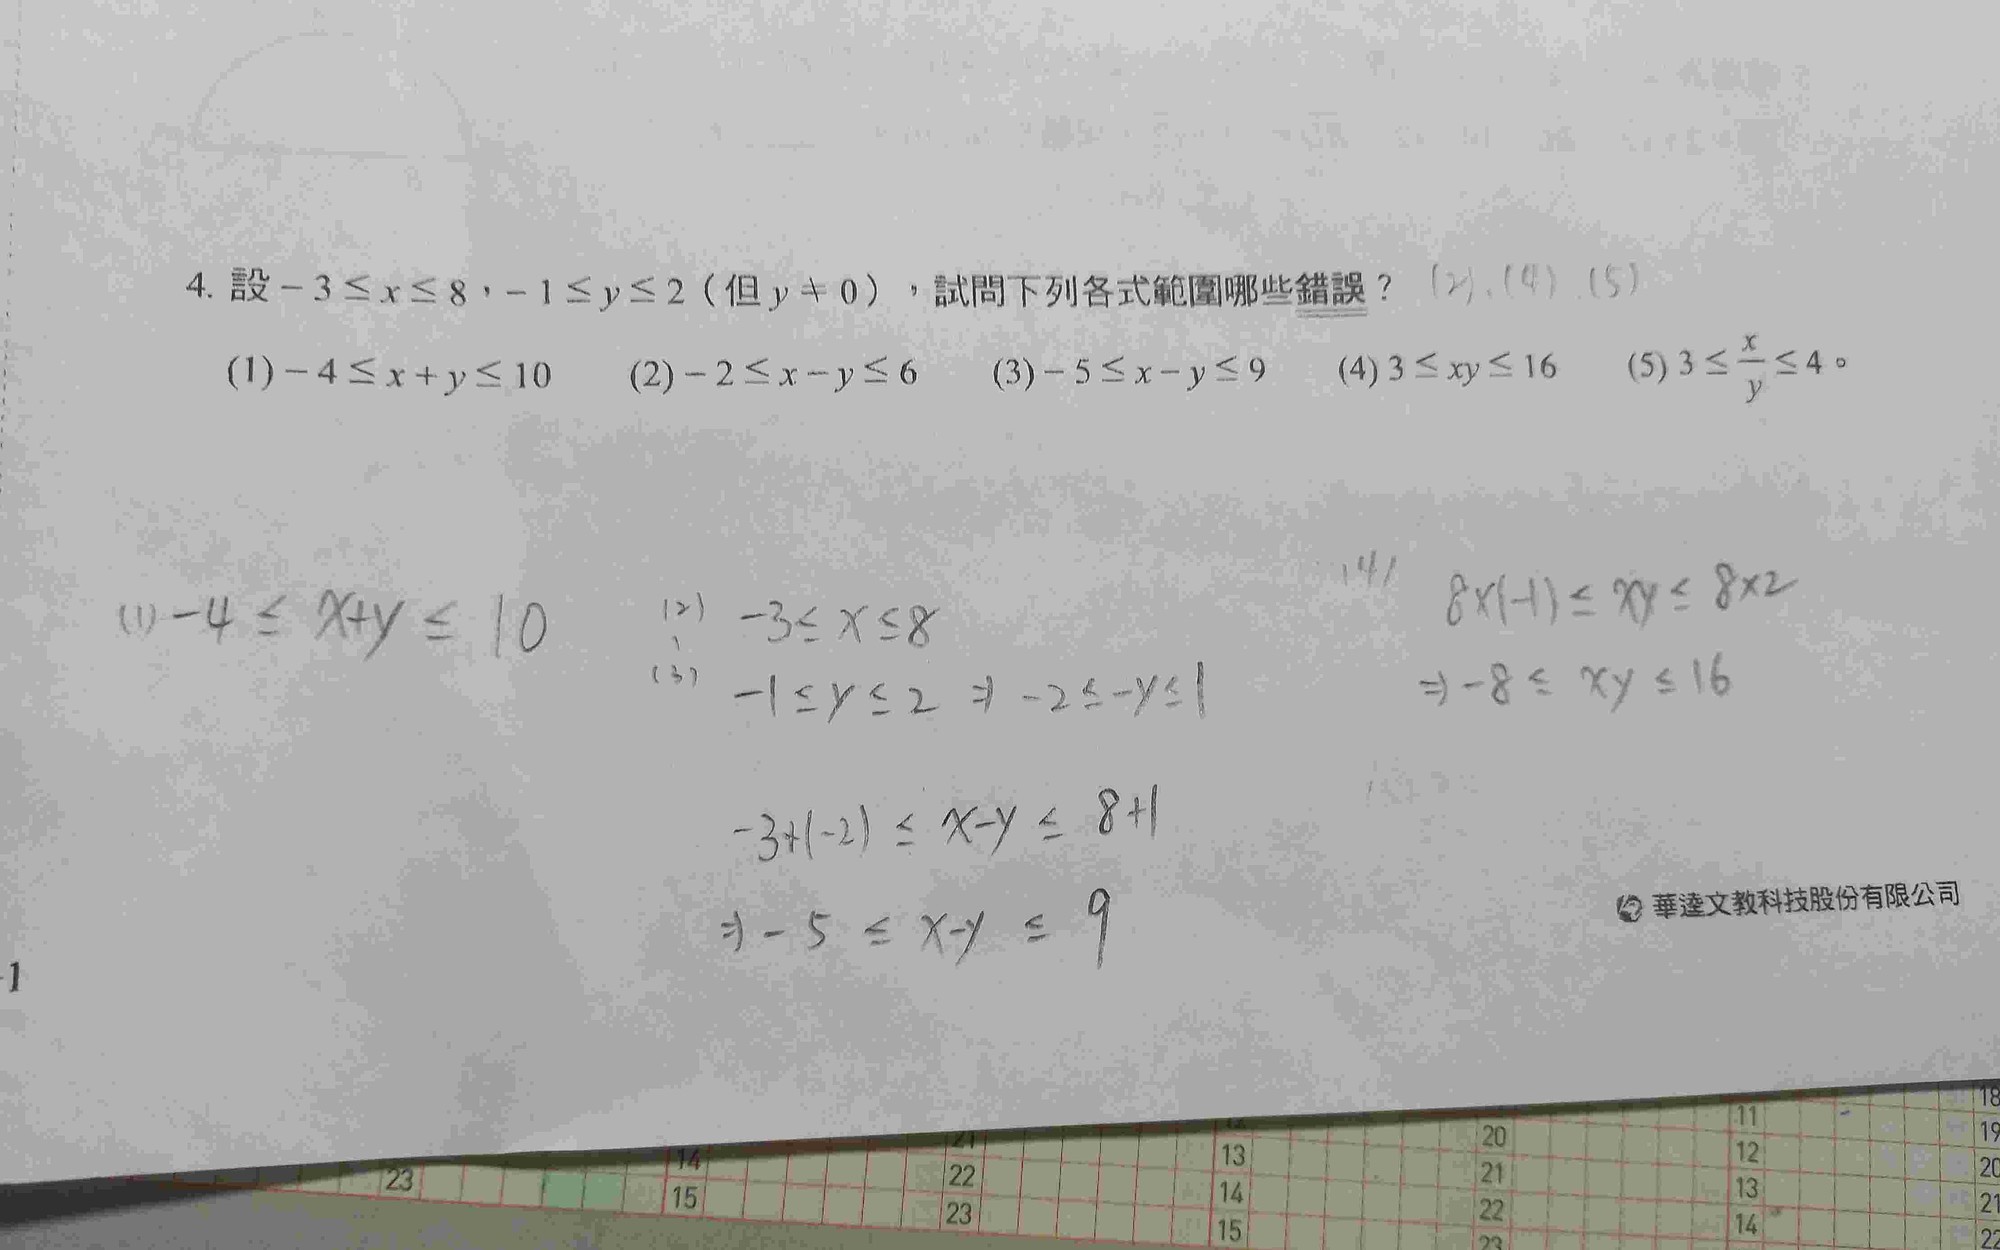 4. 設 − 3 ≤ x ≤ 8,− 1 ≤ y ≤ 2(但 y ≠ 0),試問下列各式範圍哪些錯誤? (2)、(4) (5)
(1) − 4 ≤ x + y ≤ 10 (2) − 2 ≤ x − y ≤ 6 (3) − 5 ≤ x − y ≤ 9 (4) 3 ≤ xy ≤ 16 (5) 3 ≤ x/y ≤ 4。
(1) -4 ≤ x+y ≤ 10
(2) -3 ≤ x ≤ 8
、
(3) -1 ≤ y ≤ 2 ⇒ -2 ≤ -y ≤ 1
-3+(-2) ≤ x-y ≤ 8+1
⇒ -5 ≤ x-y ≤ 9
(4) 8×(-1) ≤ xy ≤ 8×2
⇒ -8 ≤ xy ≤ 16
華逵文教科技股份有限公司
-1
23
14
15
21
22
23
12
13
14
15
20
21
22
23
11
12
13
14
18
19
20
21
22